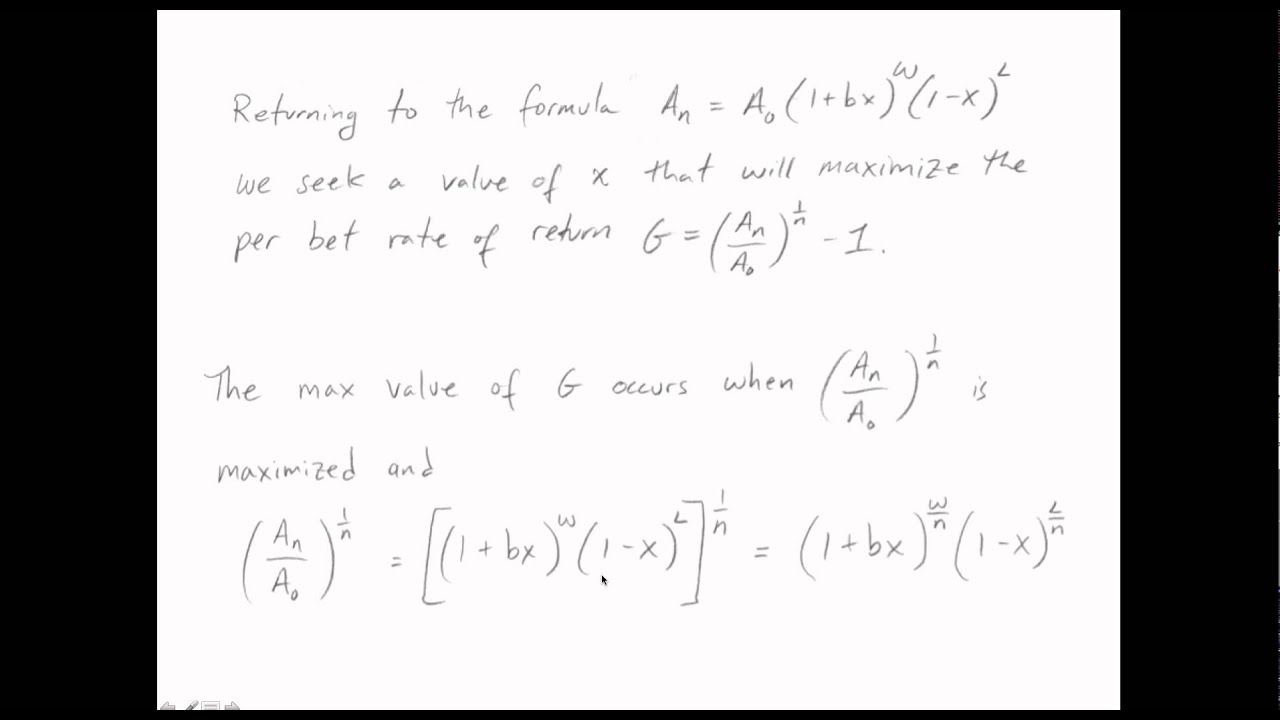 Returning to the formula Aₙ = A₀(1+bx)^W(1-x)^L
we seek a value of x that will maximize the
per bet rate of return G = (Aₙ/A₀)^(1/n) - 1.
The max value of G occurs when (Aₙ/A₀)^(1/n) is
maximized and
(Aₙ/A₀)^(1/n) = [(1+bx)^W(1-x)^L]^(1/n) = (1+bx)^(W/n)(1-x)^(L/n)